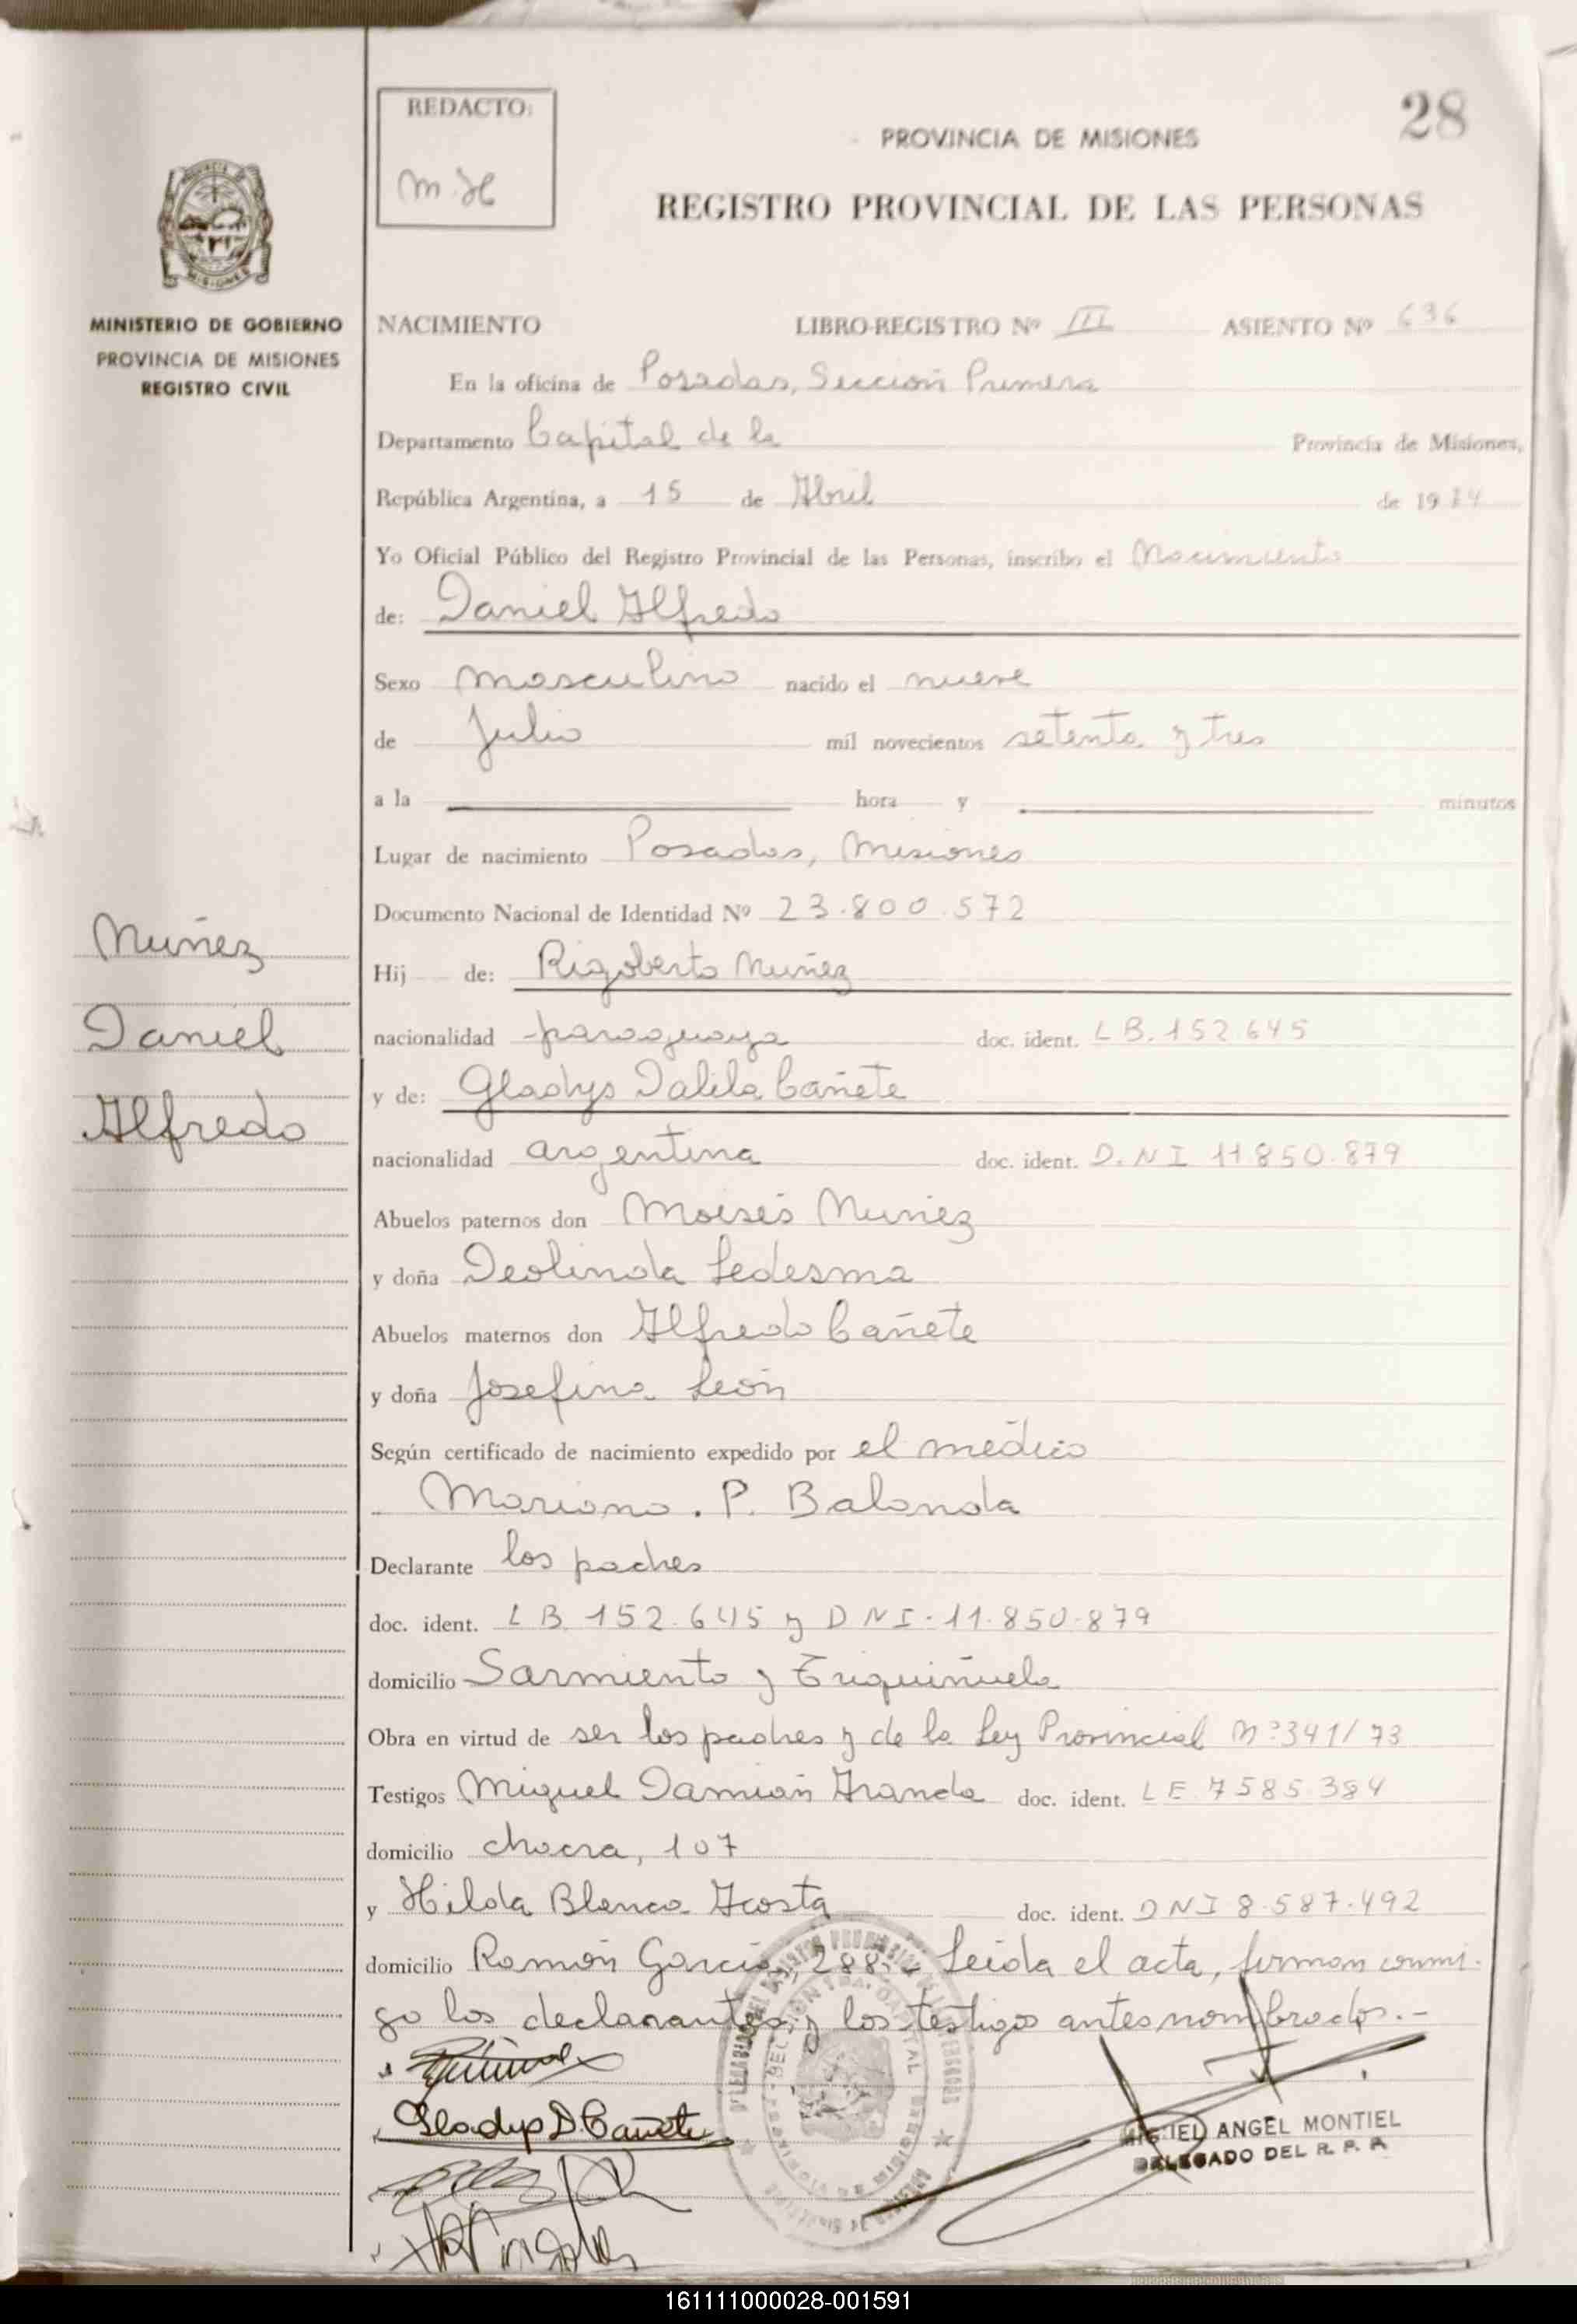 28
REDACTO:
M.H
PROVINCIA DE MISIONES
REGISTRO PROVINCIAL DE LAS PERSONAS
MISIONES
MINISTERIO DE GOBIERNO
PROVINCIA DE MISIONES
REGISTRO CIVIL
NACIMIENTO LIBRO-REGISTRO Nº III ASIENTO Nº 636
En la oficina de Posadas, Sección Primera
Departamento Capital de la Provincia de Misiones,
República Argentina, a 15 de Abril de 1974
Yo Oficial Público del Registro Provincial de las Personas, inscribo el Nacimiento
de: Daniel Alfredo
Sexo masculino nacido el nueve
de Julio mil novecientos setenta y tres
a la hora y minutos
Lugar de nacimiento Posadas, Misiones
Documento Nacional de Identidad Nº 23.800.572
Nuñez
Daniel
Alfredo
Hij de: Rigoberto Nuñez
nacionalidad paraguaya doc. ident. LB. 152.645
y de: Gladys Dalila Cañete
nacionalidad argentina doc. ident. D.N.I 11.850.879
Abuelos paternos don Moisés Nuñez
y doña Deolinda Ledesma
Abuelos maternos don Alfredo Cañete
y doña Josefina León
Según certificado de nacimiento expedido por el médico
Mariano. P. Balanda
Declarante los padres
doc. ident. LB 152.645 y DNI.11.850.879
domicilio Sarmiento y
Obra en virtud de ser los padres y de la Ley Provincial Nº341/73
Testigos Miguel Damián Aranda doc. ident. LE 7585.384
domicilio chacra, 107
y Hilda Blanca Acosta doc. ident. DNI 8.587.492
domicilio Ramón García, 288.- Leída el acta, firman conmi-
go los declarantes y los testigos antes nombrados.-
Gladys D. Cañete
MIGUEL ANGEL MONTIEL
DELEGADO DEL R. P. P.
161111000028-001591